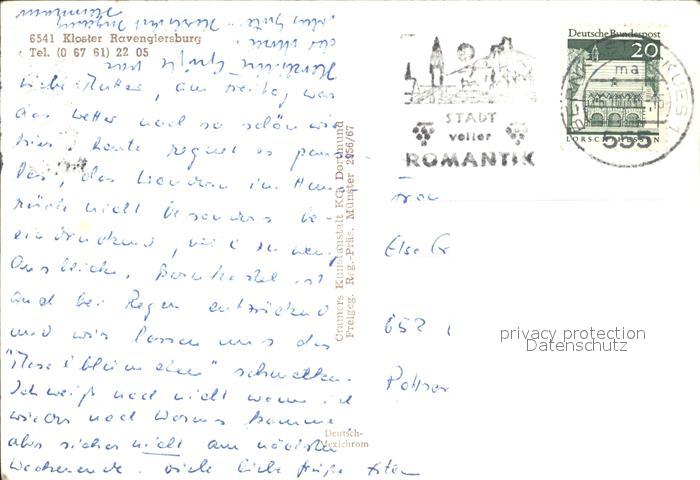 6541 Kloster Ravengiersburg
Tel. (0 67 61) 22 05
Liebe Mutter, am Freitag war
das Wetter noch so schön wie
hier! heute regnet es
das Wandern im
nicht besonders be-
eindruckend, weil zu wenig
Ausblicke. Bernkastel ist
auch bei Regen entzückend
und wir lassen uns das
"Moselblümchen" schmecken.
Ich weiß noch nicht wann ich
wieder nach Worms komme
aber sicher nicht am nächsten
Wochenende. Viele liebe Grüße
Herzliche Grüße
Cramers Kunstanstalt KG, Dortmund
Freigeg. Reg.-Präs. Münster 2956/67
Deutsch-
Mexichrom
STADT
voller
ROMANTIK
Deutsche Bundespost
20
LORSCH HESSEN
555
Frau
Else
652
privacy protection
Datenschutz